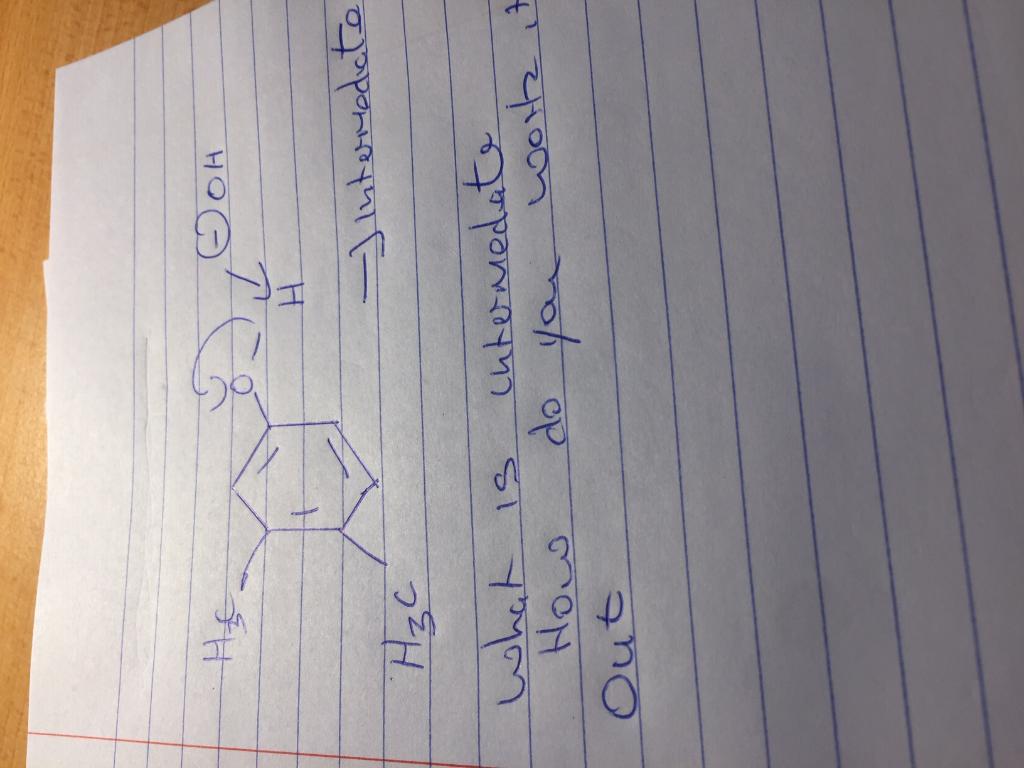 H₃C
O - H
⊖OH
H₃C
→ Intermediate
What is intermediate
How do you work it
Out